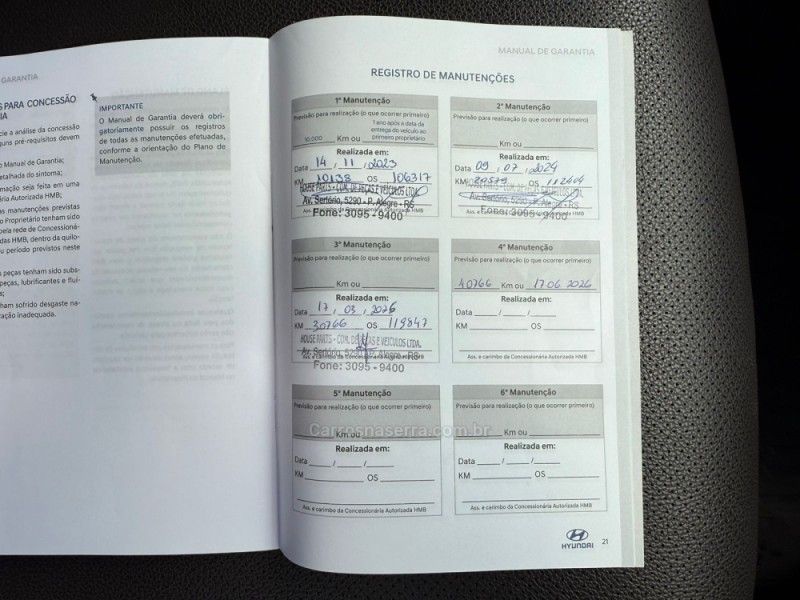 GARANTIA
S PARA CONCESSÃO
IA
cie a análise da concessão
guns pré-requisitos devem
o Manual de Garantia;
etalhada do sintoma;
mação seja feita em uma
ária Autorizada HMB;
as manutenções previstas
o Proprietário tenham sido
pela rede de Concessioná-
das HMB, dentro da quilo-
u período previstos neste
s peças tenham sido subs-
peças, lubrificantes e flui-
s;
nham sofrido desgaste na-
ração inadequada.
IMPORTANTE
O Manual de Garantia deverá obri-
gatoriamente possuir os registros
de todas as manutenções efetuadas,
conforme a orientação do Plano de
Manutenção.
MANUAL DE GARANTIA
REGISTRO DE MANUTENÇÕES
1ª Manutenção
Previsão para realização (o que ocorrer primeiro)
10.000 Km ou
1 ano após a data da
entrega do veículo ao
primeiro proprietário
Realizada em:
Data 14, 11, 2023
KM 10138 OS 106317
HOUSE PARTS - COM. DE PEÇAS E VEÍCULOS LTDA.
Av. Sertório, 5290 - P. Alegre - RS
Fone: 3095-9400
2ª Manutenção
Previsão para realização (o que ocorrer primeiro)
Km ou
Realizada em:
Data 09, 07, 2024
KM 20579 OS 112404
Av. Sertório, 5290 - P. Alegre - RS
Fone: 3095-9400
3ª Manutenção
Previsão para realização (o que ocorrer primeiro)
Km ou
Realizada em:
Data 17, 03, 2026
KM 30766 OS 119847
HOUSE PARTS - COM. DE PEÇAS E VEÍCULOS LTDA.
Av. Sertório, 5290 - P. Alegre - RS
Ass. e carimbo da Concessionária Autorizada HMB
Fone: 3095-9400
4ª Manutenção
Previsão para realização (o que ocorrer primeiro)
40766 Km ou 17 06 2026
Realizada em:
Data / /
KM OS
Ass. e carimbo da Concessionária Autorizada HMB
5ª Manutenção
Previsão para realização (o que ocorrer primeiro)
Km ou
Realizada em:
Data / /
KM OS
Ass. e carimbo da Concessionária Autorizada HMB
6ª Manutenção
Previsão para realização (o que ocorrer primeiro)
Km ou
Realizada em:
Data / /
KM OS
Ass. e carimbo da Concessionária Autorizada HMB
Carrosnaserra.com.br
HYUNDAI
21